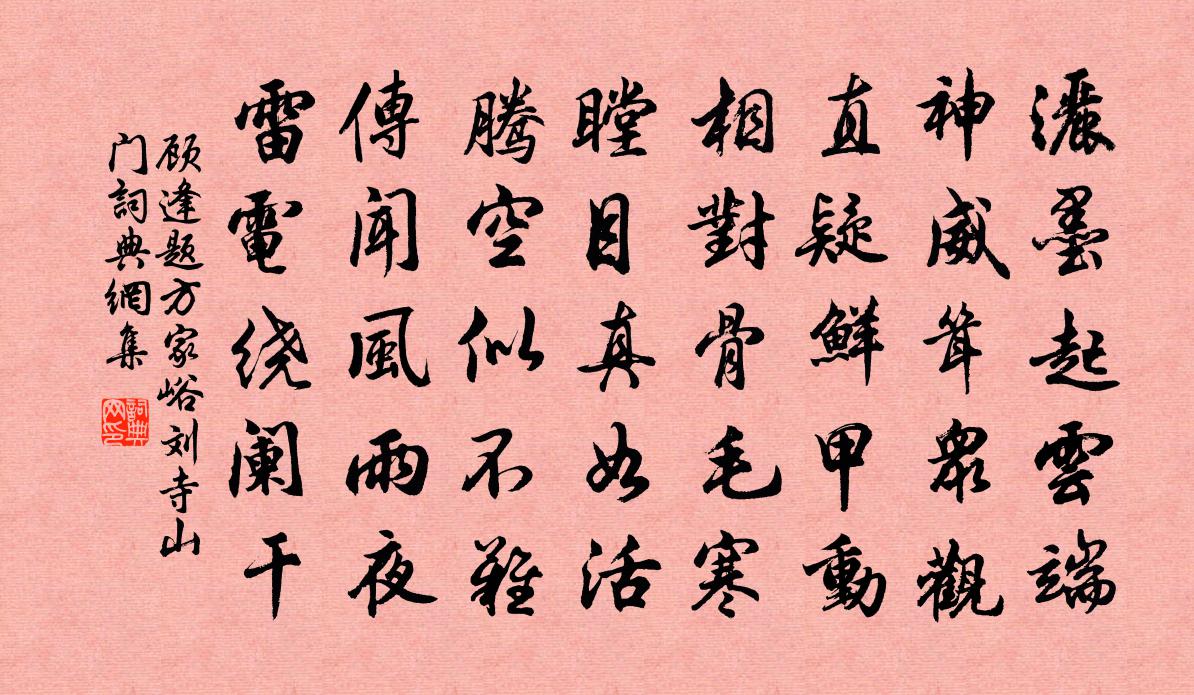 灑墨起雲端
神威耸眾觀
直疑鮮甲動
相對骨毛寒
瞠目真如活
騰空似不難
傳聞風雨夜
雷電绕阑干
顾逢题方家峪刘寺山
门詞典網集
詞典
网印